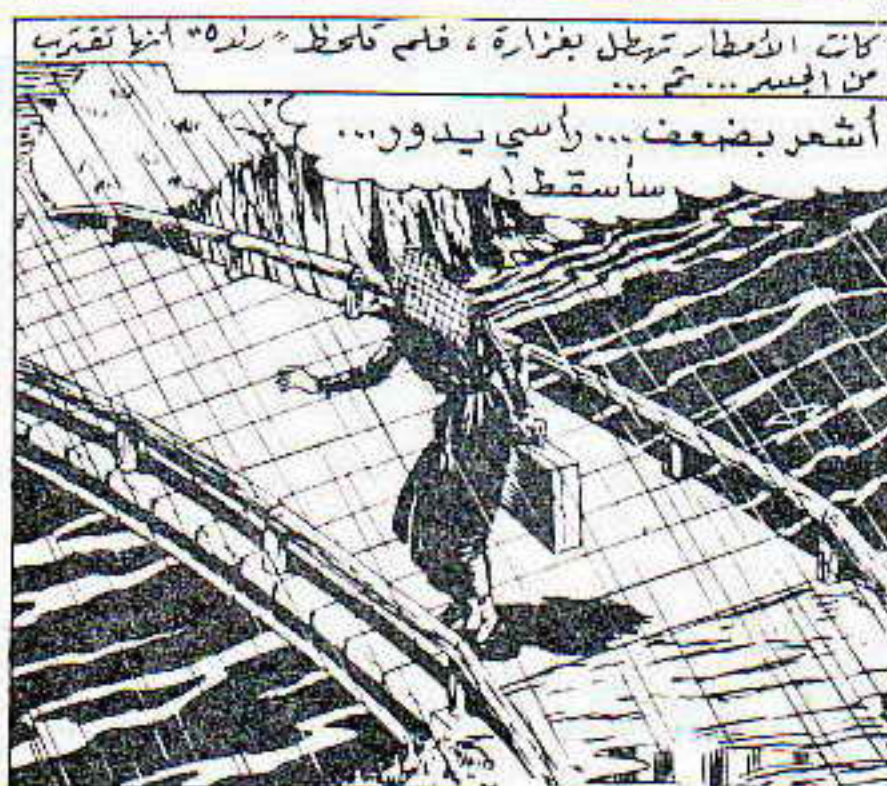 كانت الأمطار تهطل بغزارة، فلم تلحظ "رنده" أنها تقترب
من الجسر... ثم...
أشعر بضعف... رأسي يدور...
سأسقط!